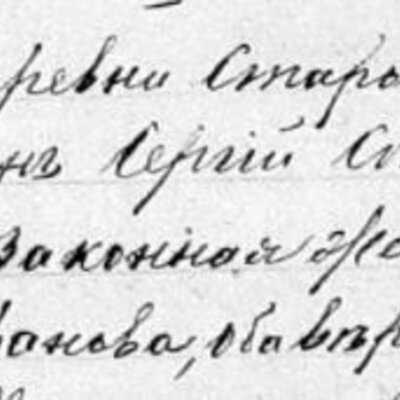 ревни Стар
нъ Сергій Ст
Законная Же
анова, оба вѣр